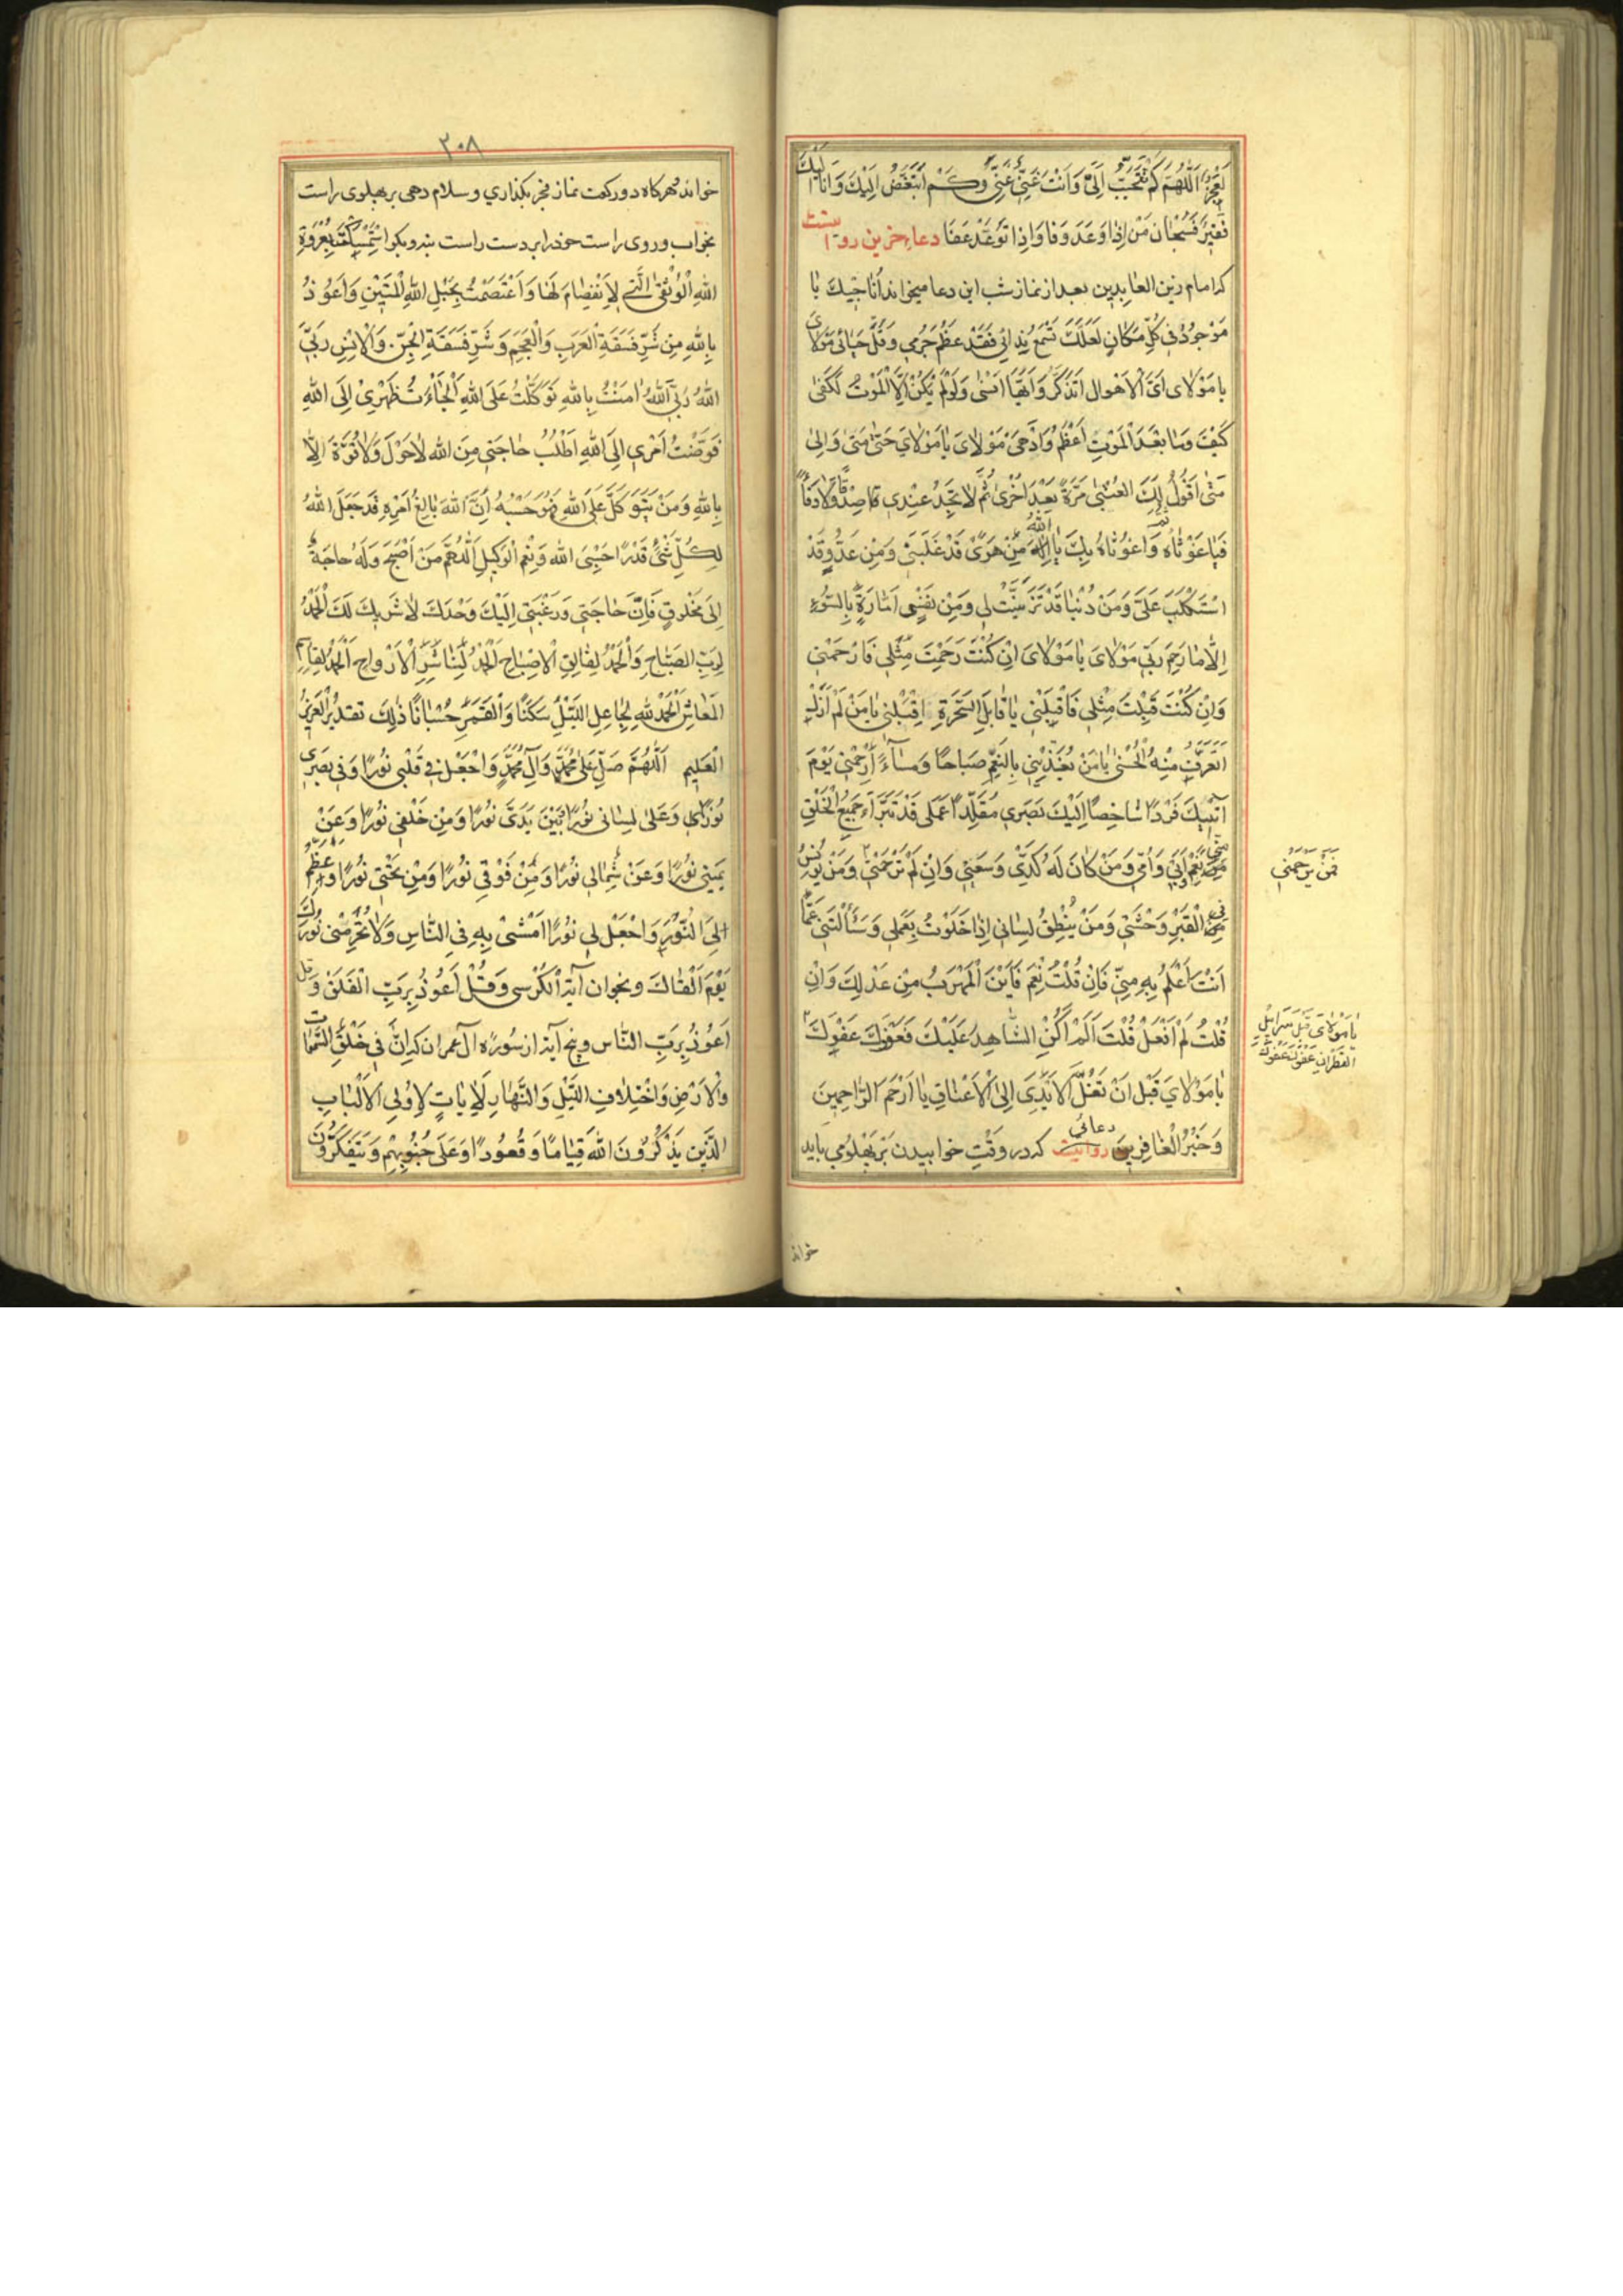 لَعَجَزَ اَللّٰهُمَّ كَمْ تَتَحَبَّبُ اِلَيَّ وَاَنْتَ غَنِيٌّ عَنّي وَكَمْ اَتَبَغَّضُ اِلَيْكَ وَاَنَا اِلَيْكَ
فَقيرٌ فَسُبْحانَ مَنْ اِذا وَعَدَ وَفا وَاِذا تَوَعَّدَ عَفَا دعاء حزين روايتست
كه امام زين العابدين بعد از نماز شب اين دعا ميخواند اُناجيكَ يا
مَوْجُودُ في كُلِّ مَكانٍ لَعَلَّكَ تَسْمَعُ نِدائي فَقَدْ عَظُمَ جُرْمي وَقَلَّ حَيائي مَوْلايَ
يا مَوْلايَ اَيَّ الْاَهْوالِ اَتَذَكَّرُ وَاَيَّها اَنْسٰى وَلَوْ لَمْ يَكُنْ اِلَّا الْمَوْتُ لَكَفٰى
كَيْفَ وَما بَعْدَ الْمَوْتِ اَعْظَمُ وَاَدْهٰى مَوْلايَ يا مَوْلايَ حَتّٰى مَتٰى وَاِلىٰ
مَتٰى اَقُولُ لَكَ الْعُتْبىٰ مَرَّةً بَعْدَ اُخْرىٰ ثُمَّ لا تَجِدُ عِنْدي صِدْقًا وَلا وَفاءً
فَيا غَوْثاهُ ثُمَّ وَاغَوْثاهُ بِكَ يا اَللهُ مِنْ هَوًى قَدْ غَلَبَني وَمِنْ عَدُوٍّ قَدْ
اسْتَكْلَبَ عَلَيَّ وَمِنْ دُنْيا قَدْ تَزَيَّنَتْ لي وَمِنْ نَفْسٍ اَمّارَةٍ بِالسُّوءِ
اِلّا ما رَحِمَ رَبّي مَوْلايَ يا مَوْلايَ اِنْ كُنْتَ رَحِمْتَ مِثْلي فَارْحَمْني
وَاِنْ كُنْتَ قَبِلْتَ مِثْلي فَاقْبَلْني يا قابِلَ السَّحَرَةِ اِقْبَلْني يا مَنْ لَمْ اَزَلْ
اَتَعَرَّفُ مِنْهُ الْحُسْنىٰ يا مَنْ يُغَذّيني بِالنِّعَمِ صَباحًا وَمَساءً اِرْحَمْني يَوْمَ
اٰتيكَ فَرْدًا شاخِصًا اِلَيْكَ بَصَري مُقَلِّدًا عَمَلي قَدْ تَبَرَّاَ جَميعُ الْخَلْقِ
مِنّي نَعَمْ وَاَبي وَاُمّي وَمَنْ كانَ لَهُ كَدّي وَسَعْيي وَاِنْ لَمْ تَرْحَمْني وَمَنْ يُونِسُ
فَمَنْ يَرْحَمُني
فِي الْقَبْرِ وَحْشَتي وَمَنْ يُنْطِقُ لِساني اِذا خَلَوْتُ بِعَمَلي وَسَأَلْتَني عَمّا
اَنْتَ اَعْلَمُ بِهِ مِنّي فَاِنْ قُلْتُ نَعَمْ فَاَيْنَ الْمَهْرَبُ مِنْ عَدْلِكَ وَاِنْ
قُلْتُ لَمْ اَفْعَلْ قُلْتَ اَلَمْ اَكُنِ الشّاهِدَ عَلَيْكَ فَعَفْوَكَ عَفْوَكَ
يا مَوْلايَ قَبْلَ سَرابيلِ
القَطِرانِ عَفْوَكَ عَفْوَكَ
يا مَوْلايَ قَبْلَ اَنْ تُغَلَّ الْاَيْدي اِلَى الْاَعْناقِ يا اَرْحَمَ الرّاحِمينَ
وَخَيْرَ الْغافِرينَ دعائي روايتست كه در وقتِ خوابيدن بر پهلو مي بايد
خواند
٣٠٨
خواند هركاه دو ركعت نماز فجر بكذاري وسلام دهي بر پهلوى راست
بخواب وروى راست خود را بر دست راست بنه وبكو اسْتَمْسَكْتُ بِعُرْوَةِ
اللهِ الْوُثْقىٰ الَّتي لَا انْفِصامَ لَها وَاعْتَصَمْتُ بِحَبْلِ اللهِ الْمَتينِ وَاَعُوذُ
بِاللهِ مِنْ شَرِّ فَسَقَةِ الْعَرَبِ وَالْعَجَمِ وَشَرِّ فَسَقَةِ الْجِنِّ وَالْاِنْسِ رَبِّيَ
اللهُ رَبِّيَ اللهُ اٰمَنْتُ بِاللهِ تَوَكَّلْتُ عَلَى اللهِ اَلْجَأْتُ ظَهْري اِلَى اللهِ
فَوَّضْتُ اَمْري اِلَى اللهِ اَطْلُبُ حاجَتي مِنَ اللهِ لا حَوْلَ وَلا قُوَّةَ اِلّا
بِاللهِ وَمَنْ يَتَوَكَّلْ عَلَى اللهِ فَهُوَ حَسْبُهُ اِنَّ اللهَ بالِغُ اَمْرِهِ قَدْ جَعَلَ اللهُ
لِكُلِّ شَيْءٍ قَدْرًا حَسْبِيَ اللهُ وَنِعْمَ الْوَكيلُ اَللّٰهُمَّ مَنْ اَصْبَحَ وَلَهُ حاجَةٌ
اِلىٰ مَخْلوقٍ فَاِنَّ حاجَتي وَرَغْبَتي اِلَيْكَ وَحْدَكَ لا شَريكَ لَكَ الْحَمْدُ
لِرَبِّ الصَّباحِ وَالْحَمْدُ لِفالِقِ الْاِصْباحِ الْحَمْدُ لِناشِرِ الْاَرْواحِ الْحَمْدُ لِقاسِمِ
الْمَعاشِ الْحَمْدُ للهِ جاعِلِ اللَّيْلِ سَكَنًا وَالْقَمَرِ حُسْبانًا ذٰلِكَ تَقْديرُ الْعَزيزِ
الْعَليمِ اَللّٰهُمَّ صَلِّ عَلىٰ مُحَمَّدٍ وَآلِ مُحَمَّدٍ وَاجْعَلْ في قَلْبي نُورًا وَفي بَصَري
نُورًا وَعَلىٰ لِساني نُورًا وَبَيْنَ يَدَيَّ نُورًا وَمِنْ خَلْفي نُورًا وَعَنْ
يَميني نُورًا وَعَنْ شِمالي نُورًا وَمِنْ فَوْقي نُورًا وَمِنْ تَحْتي نُورًا وَعَظِّمْ
لِيَ النُّورَ وَاجْعَلْ لي نُورًا اَمْشي بِهِ فِي النّاسِ وَلا تَحْرِمْني نُورَكَ
يَوْمَ اَلْقاكَ وبخوان آية الكرسي وَقُلْ اَعُوذُ بِرَبِّ الْفَلَقِ وَقُلْ
اَعُوذُ بِرَبِّ النّاسِ وپنج آية از سوره آل عمران كه اِنَّ في خَلْقِ السَّمٰواتِ
وَالْاَرْضِ وَاخْتِلافِ اللَّيْلِ وَالنَّهارِ لَاٰياتٍ لِاُولِي الْاَلْبابِ
الَّذينَ يَذْكُرُونَ اللهَ قِيامًا وَقُعُودًا وَعَلىٰ جُنُوبِهِمْ وَيَتَفَكَّرُونَ